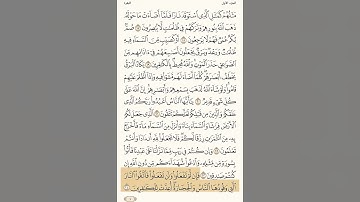 الجزء الأول البقرة
مَثَلُهُمْ كَمَثَلِ ٱلَّذِى ٱسْتَوْقَدَ نَارًا فَلَمَّآ أَضَآءَتْ مَا حَوْلَهُۥ
ذَهَبَ ٱللَّهُ بِنُورِهِمْ وَتَرَكَهُمْ فِى ظُلُمَٰتٍ لَّا يُبْصِرُونَ ١٧ صُمٌّۢ
بُكْمٌ عُمْىٌ فَهُمْ لَا يَرْجِعُونَ ١٨ أَوْ كَصَيِّبٍ مِّنَ ٱلسَّمَآءِ فِيهِ
ظُلُمَٰتٌ وَرَعْدٌ وَبَرْقٌ يَجْعَلُونَ أَصَٰبِعَهُمْ فِىٓ ءَاذَانِهِم مِّنَ
ٱلصَّوَٰعِقِ حَذَرَ ٱلْمَوْتِ وَٱللَّهُ مُحِيطٌۢ بِٱلْكَٰفِرِينَ ١٩ يَكَادُ ٱلْبَرْقُ
يَخْطَفُ أَبْصَٰرَهُمْ كُلَّمَآ أَضَآءَ لَهُم مَّشَوْا۟ فِيهِ وَإِذَآ أَظْلَمَ عَلَيْهِمْ
قَامُوا۟ وَلَوْ شَآءَ ٱللَّهُ لَذَهَبَ بِسَمْعِهِمْ وَأَبْصَٰرِهِمْ إِنَّ ٱللَّهَ عَلَىٰ
كُلِّ شَىْءٍ قَدِيرٌ ٢٠ يَٰٓأَيُّهَا ٱلنَّاسُ ٱعْبُدُوا۟ رَبَّكُمُ ٱلَّذِى
خَلَقَكُمْ وَٱلَّذِينَ مِن قَبْلِكُمْ لَعَلَّكُمْ تَتَّقُونَ ٢١ ٱلَّذِى جَعَلَ لَكُمُ
ٱلْأَرْضَ فِرَٰشًا وَٱلسَّمَآءَ بِنَآءً وَأَنزَلَ مِنَ ٱلسَّمَآءِ مَآءً فَأَخْرَجَ
بِهِۦ مِنَ ٱلثَّمَرَٰتِ رِزْقًا لَّكُمْ فَلَا تَجْعَلُوا۟ لِلَّهِ أَندَادًا وَأَنتُمْ
تَعْلَمُونَ ٢٢ وَإِن كُنتُمْ فِى رَيْبٍ مِّمَّا نَزَّلْنَا عَلَىٰ عَبْدِنَا فَأْتُوا۟
بِسُورَةٍ مِّن مِّثْلِهِۦ وَٱدْعُوا۟ شُهَدَآءَكُم مِّن دُونِ ٱللَّهِ إِن
كُنتُمْ صَٰدِقِينَ ٢٣ فَإِن لَّمْ تَفْعَلُوا۟ وَلَن تَفْعَلُوا۟ فَٱتَّقُوا۟ ٱلنَّارَ
ٱلَّتِى وَقُودُهَا ٱلنَّاسُ وَٱلْحِجَارَةُ أُعِدَّتْ لِلْكَٰفِرِينَ ٢٤